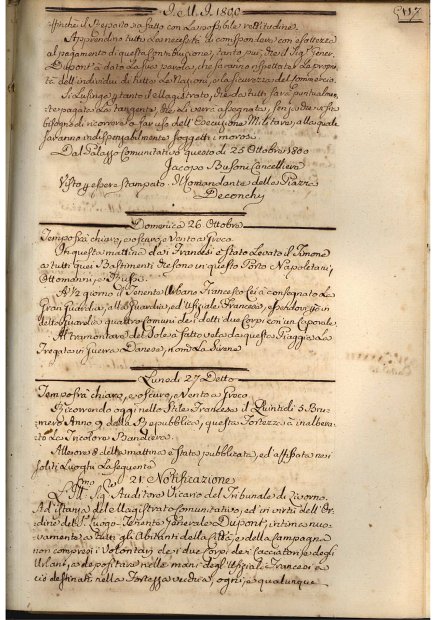 I. M. I. 1800
affinchè il Reparto sia fatto con la possibile rettitudine.
Apprendino tutti la necessità di corrispondere con esattezza
al pagamento di questa Contribuzione, tanto più che il Sig. Gener.
Dupont à data la Sua parola, che saranno rispettate le proprie
tà dell'individui di tutte le Nazioni, e la sicurezza del Commercio.
Si lusinga pertanto il Magistrato, che da tutti sarà puntualmen-
te pagata la tangente, che li verrà assegnata, senza che vi sia
bisogno di ricorrere a far uso dell'Esecuzione Militare, alla quale
saranno indispensabilmente soggetti i morosi.
Dal Palazzo Comunitativo questo dì 25 Ottobre 1800
Jacopo Busoni Cancelliere
Visto, e essere stampato. Il Comandante della Piazza
Deconchy
Domenica 26 Ottobre
Tempo frà chiaro, e oscuro, e Vento a Greco
In questa mattina dai Francesi è stato levato il Timone
a tutti quei Bastimenti che sono in questo Porto Napoletani,
Ottomanni, e
A 1/2 giorno il Tenente Urbano Francesco à consegnato la
Gran Guardia, all'Ufiziale Francese,
detta Guardia quattro Comuni de i detti due Corpi con un Caporale.
Al tramontare del Sole à fatto vela da questa Spiaggia La
Fregata in Guerra Danese, nom.ta La Sirene
Lunedì 27 Detto
Tempo frà chiaro, e oscuro, e Vento a Greco
Ricorrendo oggi nello Stile Francese il Quintidì 5 Bru-
mero Anno 9 della Repubblica, questa Fortezza à inalbera-
to la Tricolore Bandiera.
Alle ore 8 della mattina è stata pubblicata, ed affissata nei
soliti Luoghi La seguente
21. Notificazione
L'Ill.mo Sig. Auditore Vicario del Tribunale di Livorno.
Ad istanza del Magistrato Comunitativo, ed in virtù dell'Or-
dine del Luogo-Tenente Generale Dupont, intima nuo-
vamente a tutti gli Abitanti della Città, e della Campagna
non compresi i Volontari de i due Corpi dei Cacciatori e degli
Urbani, a depositare nelle mani degl'Ufiziali Francesi a
ciò destinati nella Fortezza vecchia, ogni, e qualunque